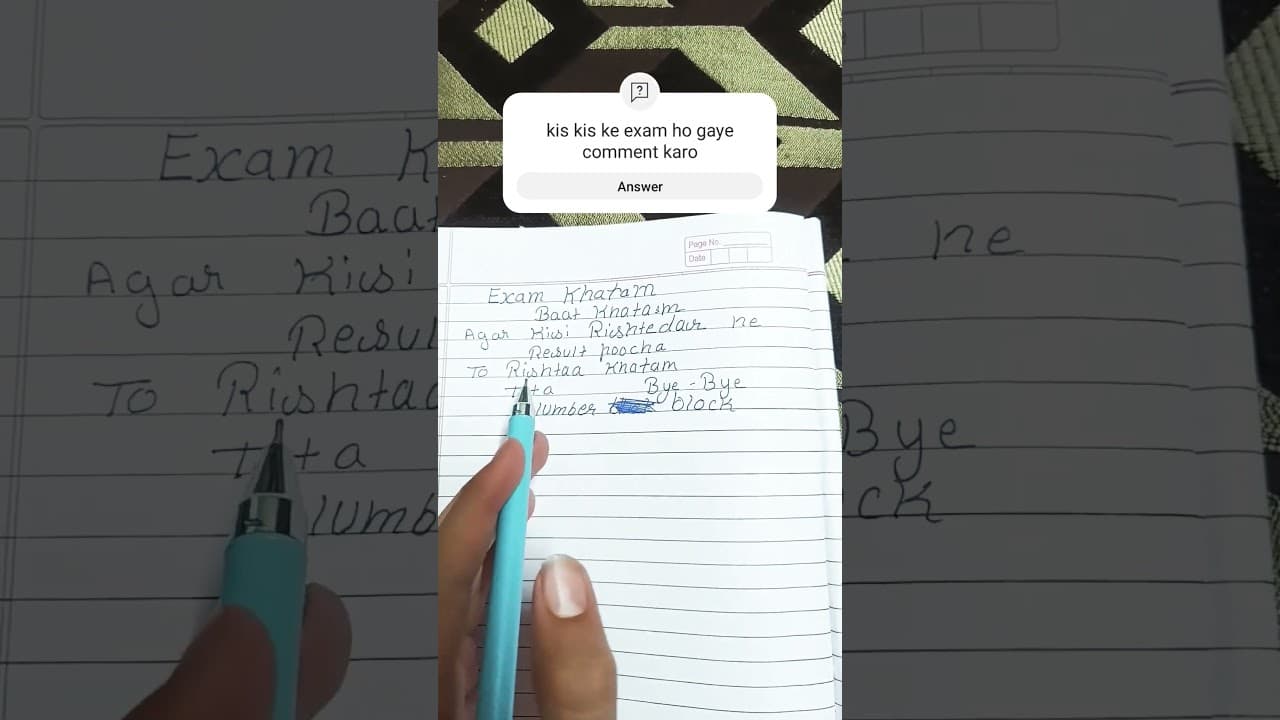 kis kis ke exam ho gaye
comment karo
Answer
Page No.
Date
Exam Khatam
Baat Khatam
Agar Kisi Rishtedaar ne
Result poocha
To Rishtaa Khatam
Bye - Bye
block